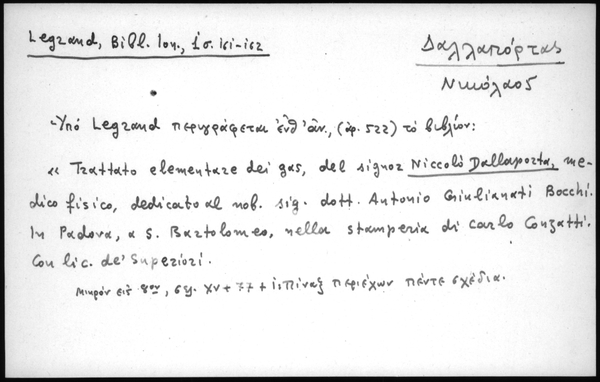 Legrand, Bibl. Ion., 1 σ. 161-162
Δαλλαπόρτας
Νικόλαος
-Υπό Legrand περιγράφεται ἐνθ' ἀν., (ἀρ. 522) τὸ βιβλίον:
« Trattato elementare dei gas, del signor Niccolò Dallaporta, me-
dico fisico, dedicato al nob. sig. dott. Antonio Giulianati Bocchi.
In Padova, a S. Bartolomeo, nella stamperia di Carlo Conzatti.
Con lic. de' Superiori.
Μικρὸν εἰς 8ον, σελ. XV + 77 + πίναξ περιέχων πέντε σχέδια.